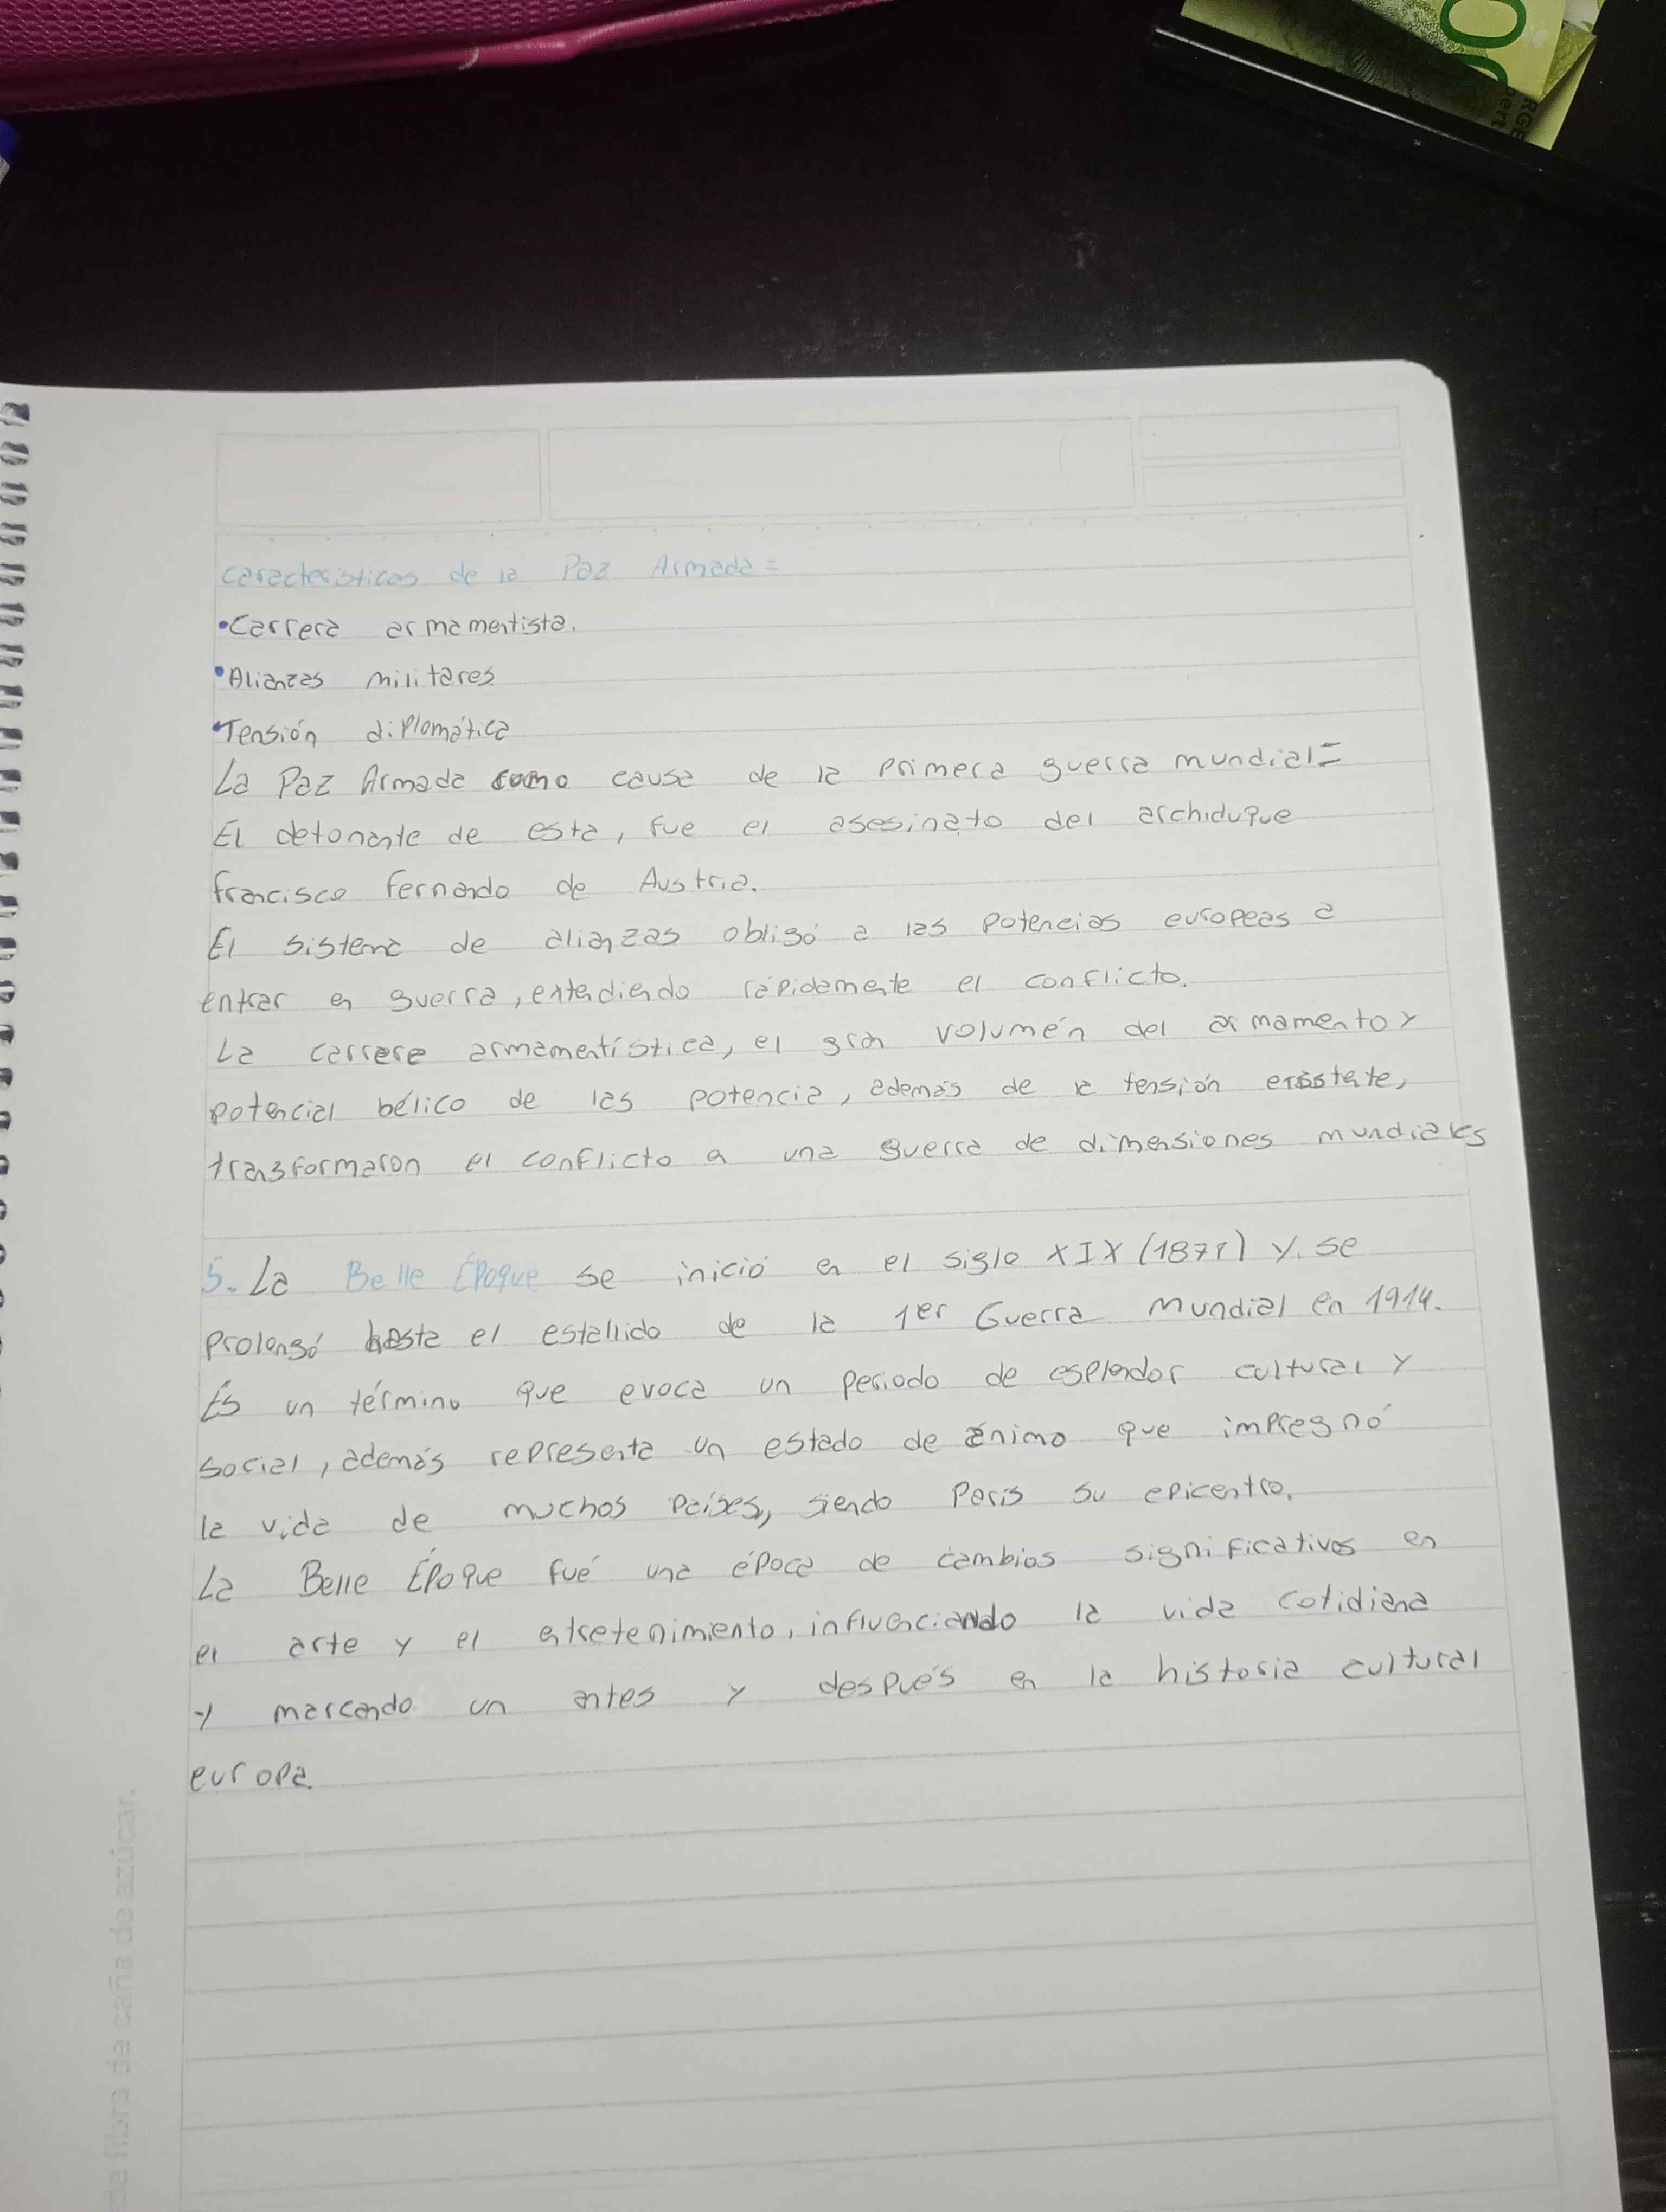 0
RGE
pert
Características de la Paz Armada=
•Carrera armamentista.
•Alianzas militares
•Tensión diplomática
La Paz Armada como causa de la primera guerra mundial=
El detonante de esta, fue el asesinato del archiduque
francisco Fernando de Austria.
El sistema de alianzas obligó a las potencias europeas a
entrar en guerra, extendiendo rápidamente el conflicto.
La carrera armamentística, el gran volumén del armamento y
potencial bélico de las potencia, además de la tensión existente,
transformaron el conflicto a una guerra de dimensiones mundiales
5. La Belle Époque se inició en el siglo XIX (1871) y se
prolongó hasta el estallido de la 1er Guerra Mundial en 1914.
Es un término que evoca un periodo de esplendor cultural y
social, además representa un estado de ánimo que impregnó
la vida de muchos países, siendo París su epicentro.
La Belle Époque fué una época de cambios significativos en
el arte y el entretenimiento, influenciando la vida cotidiana
y marcando un antes y después en la historia cultural
europa.
de fibra de caña de azúcar.